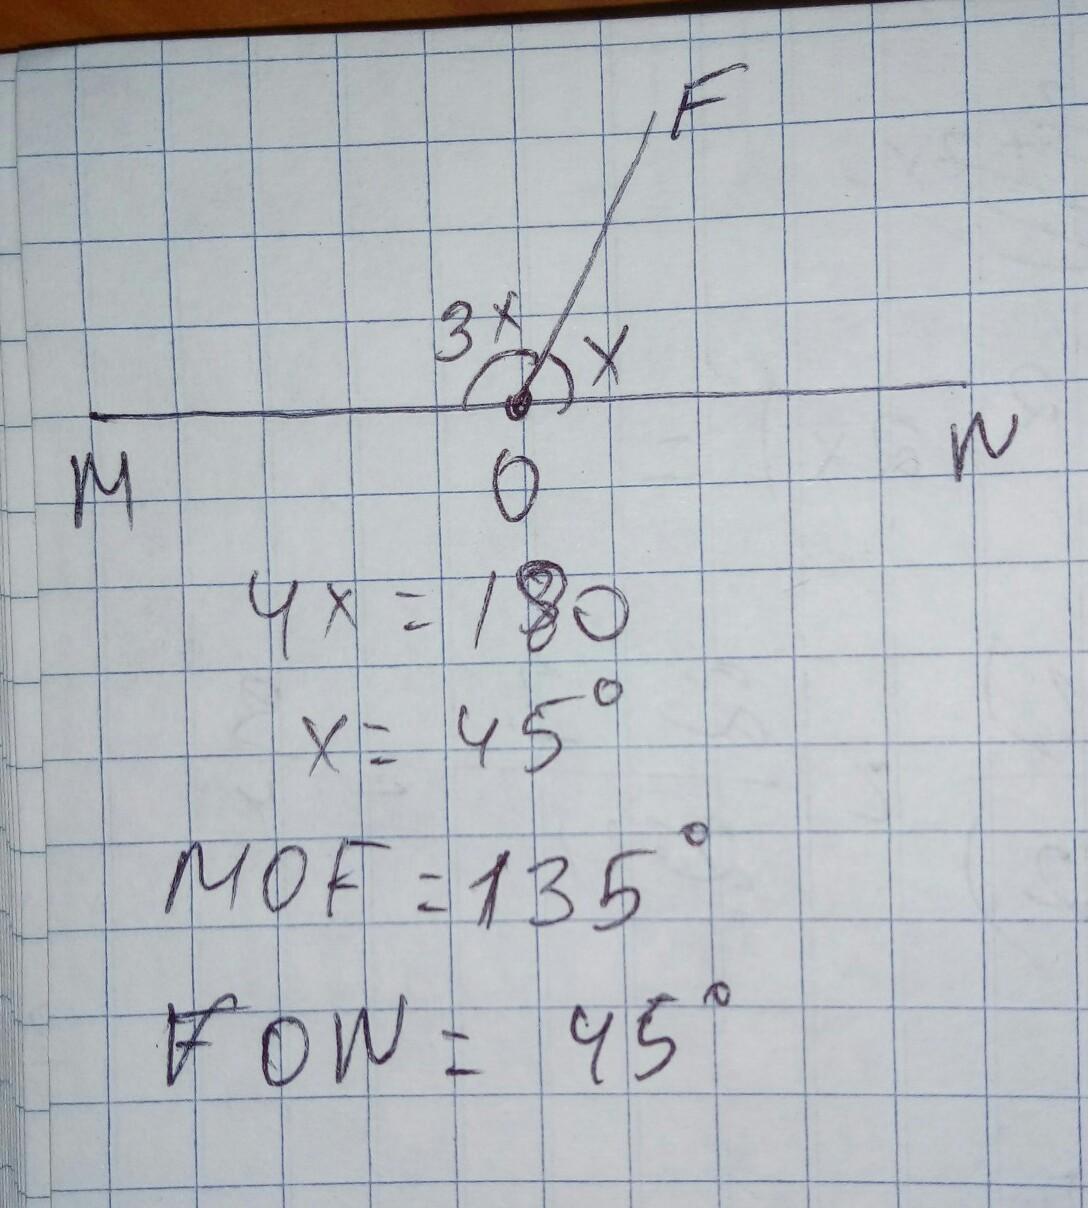 F
3x x
M O N
4x = 180
x = 45°
MOF = 135°
FON = 45°